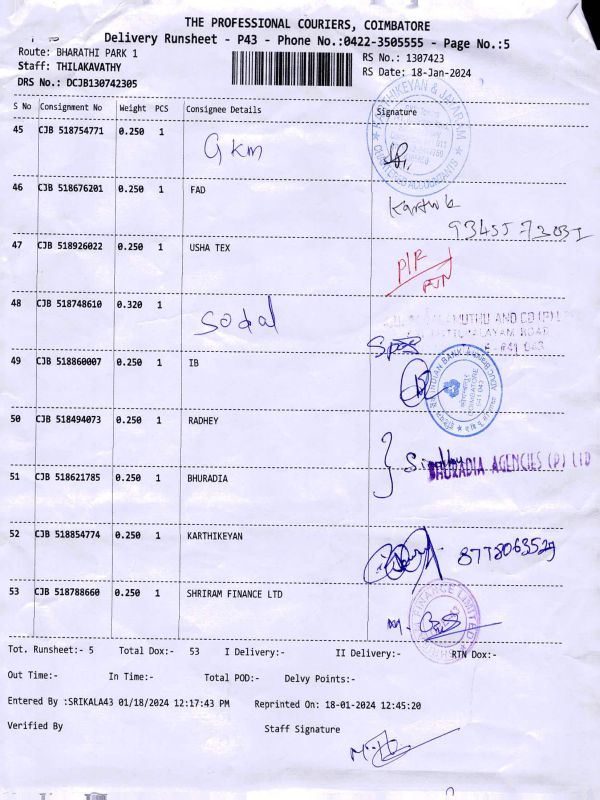 THE PROFESSIONAL COURIERS, COIMBATORE
Delivery Runsheet - P43 - Phone No.:0422-3505555 - Page No.:5
Route: BHARATHI PARK 1
RS No.: 1307423
Staff: THILAKAVATHY
RS Date: 18-Jan-2024
DRS No.: DCJB130742305
S No Consignment No Weight PCS Consignee Details Signature
45 CJB 518754771 0.250 1 Gkm
CHARTERED ACCOUNTANTS
46 CJB 518676201 0.250 1 FAD
47 CJB 518926022 0.250 1 USHA TEX
48 CJB 518748610 0.320 1 Sodal
MUTHU AND CO (P)
49 CJB 518860007 0.250 1 IB
INDIAN BANK
50 CJB 518494073 0.250 1 RADHEY
51 CJB 518621785 0.250 1 BHURADIA
BHURADIA AGENCIES (P) LTD
52 CJB 518854774 0.250 1 KARTHIKEYAN
8778063529
53 CJB 518788660 0.250 1 SHRIRAM FINANCE LTD
FINANCE LIMITED
Tot. Runsheet:- 5 Total Dox:- 53 I Delivery:- II Delivery:- RTN Dox:-
Out Time:- In Time:- Total POD:- Delvy Points:-
Entered By :SRIKALA43 01/18/2024 12:17:43 PM Reprinted On: 18-01-2024 12:45:20
Verified By Staff Signature